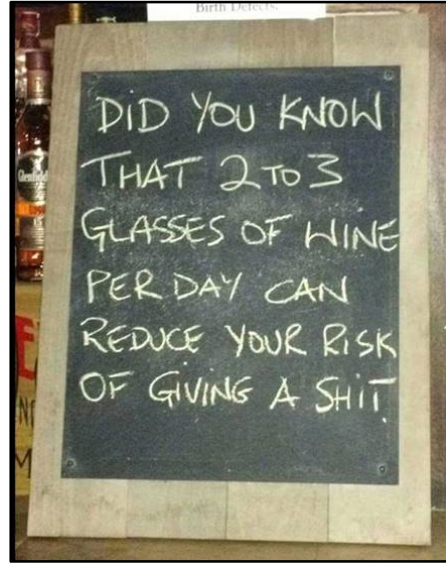 Birth Defects.
DID YOU KNOW
THAT 2 TO 3
GLASSES OF WINE
PER DAY CAN
REDUCE YOUR RISK
OF GIVING A SHIT